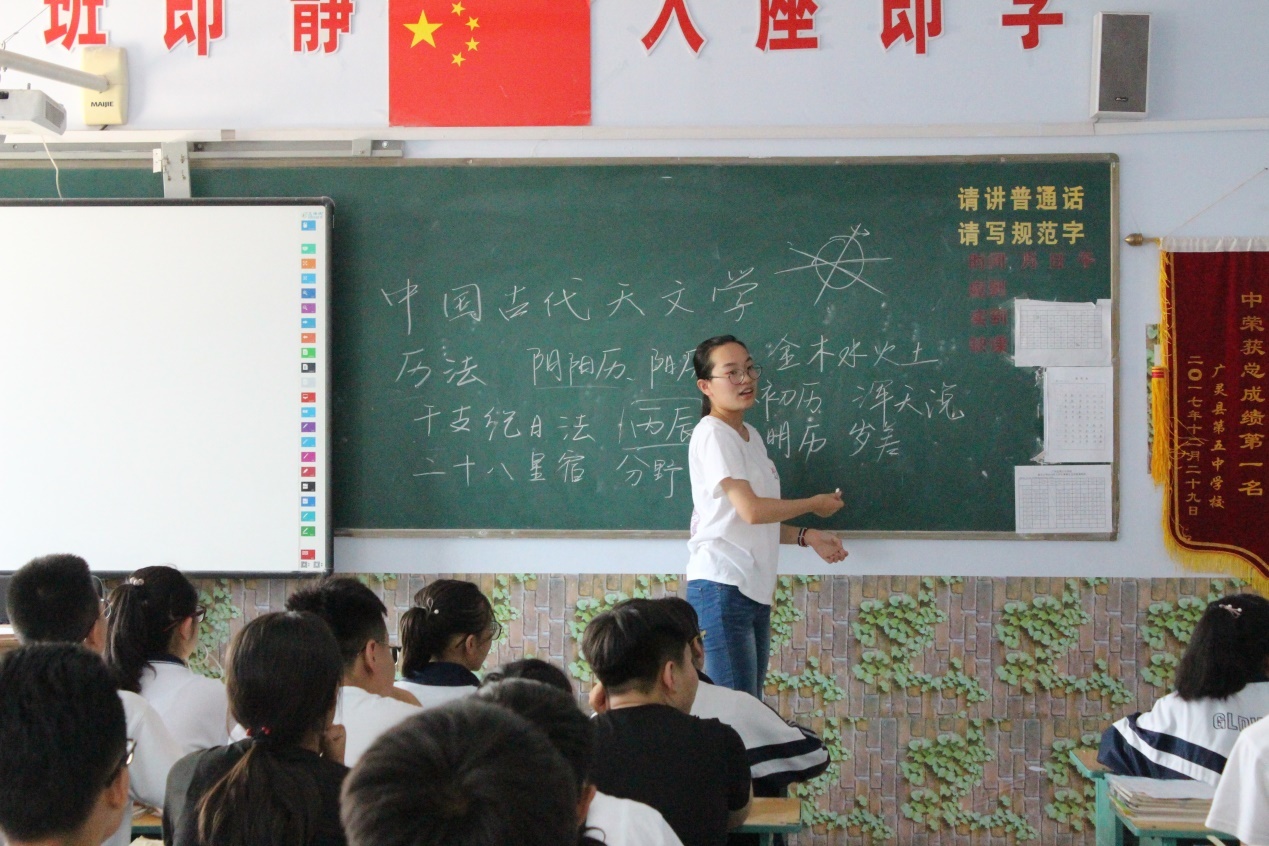 班即静 入座即学
MAIJIE
请讲普通话
请写规范字
中国古代天文学
历法 阴阳历、阴 金木水火土
干支纪日法 丙辰 初历 浑天说
二十八星宿 分野 明历 岁差
中荣获总成绩第一名
广灵县第五中学校
二〇一七年十一月二十九日